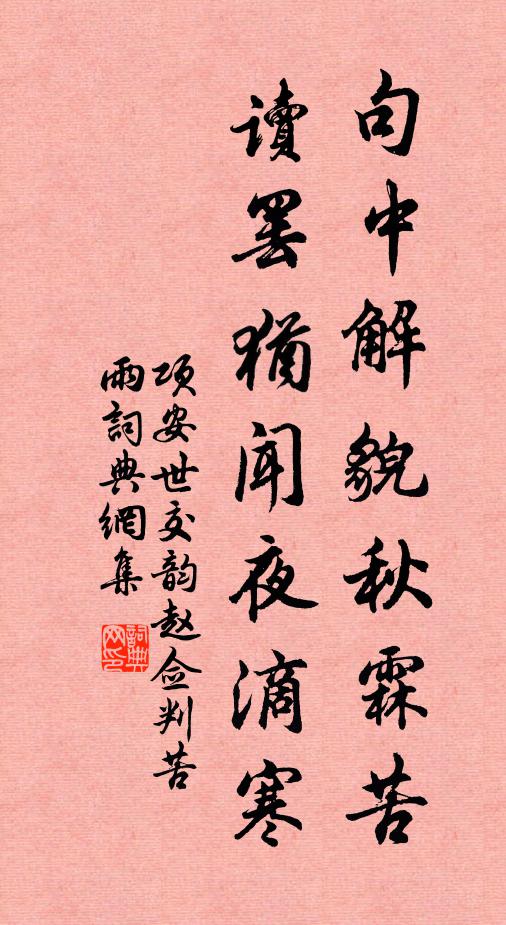 句中解貌秋霖苦
讀罷猶聞夜滴寒
项安世次韵赵佥判苦
雨詞典網集
詞典网印